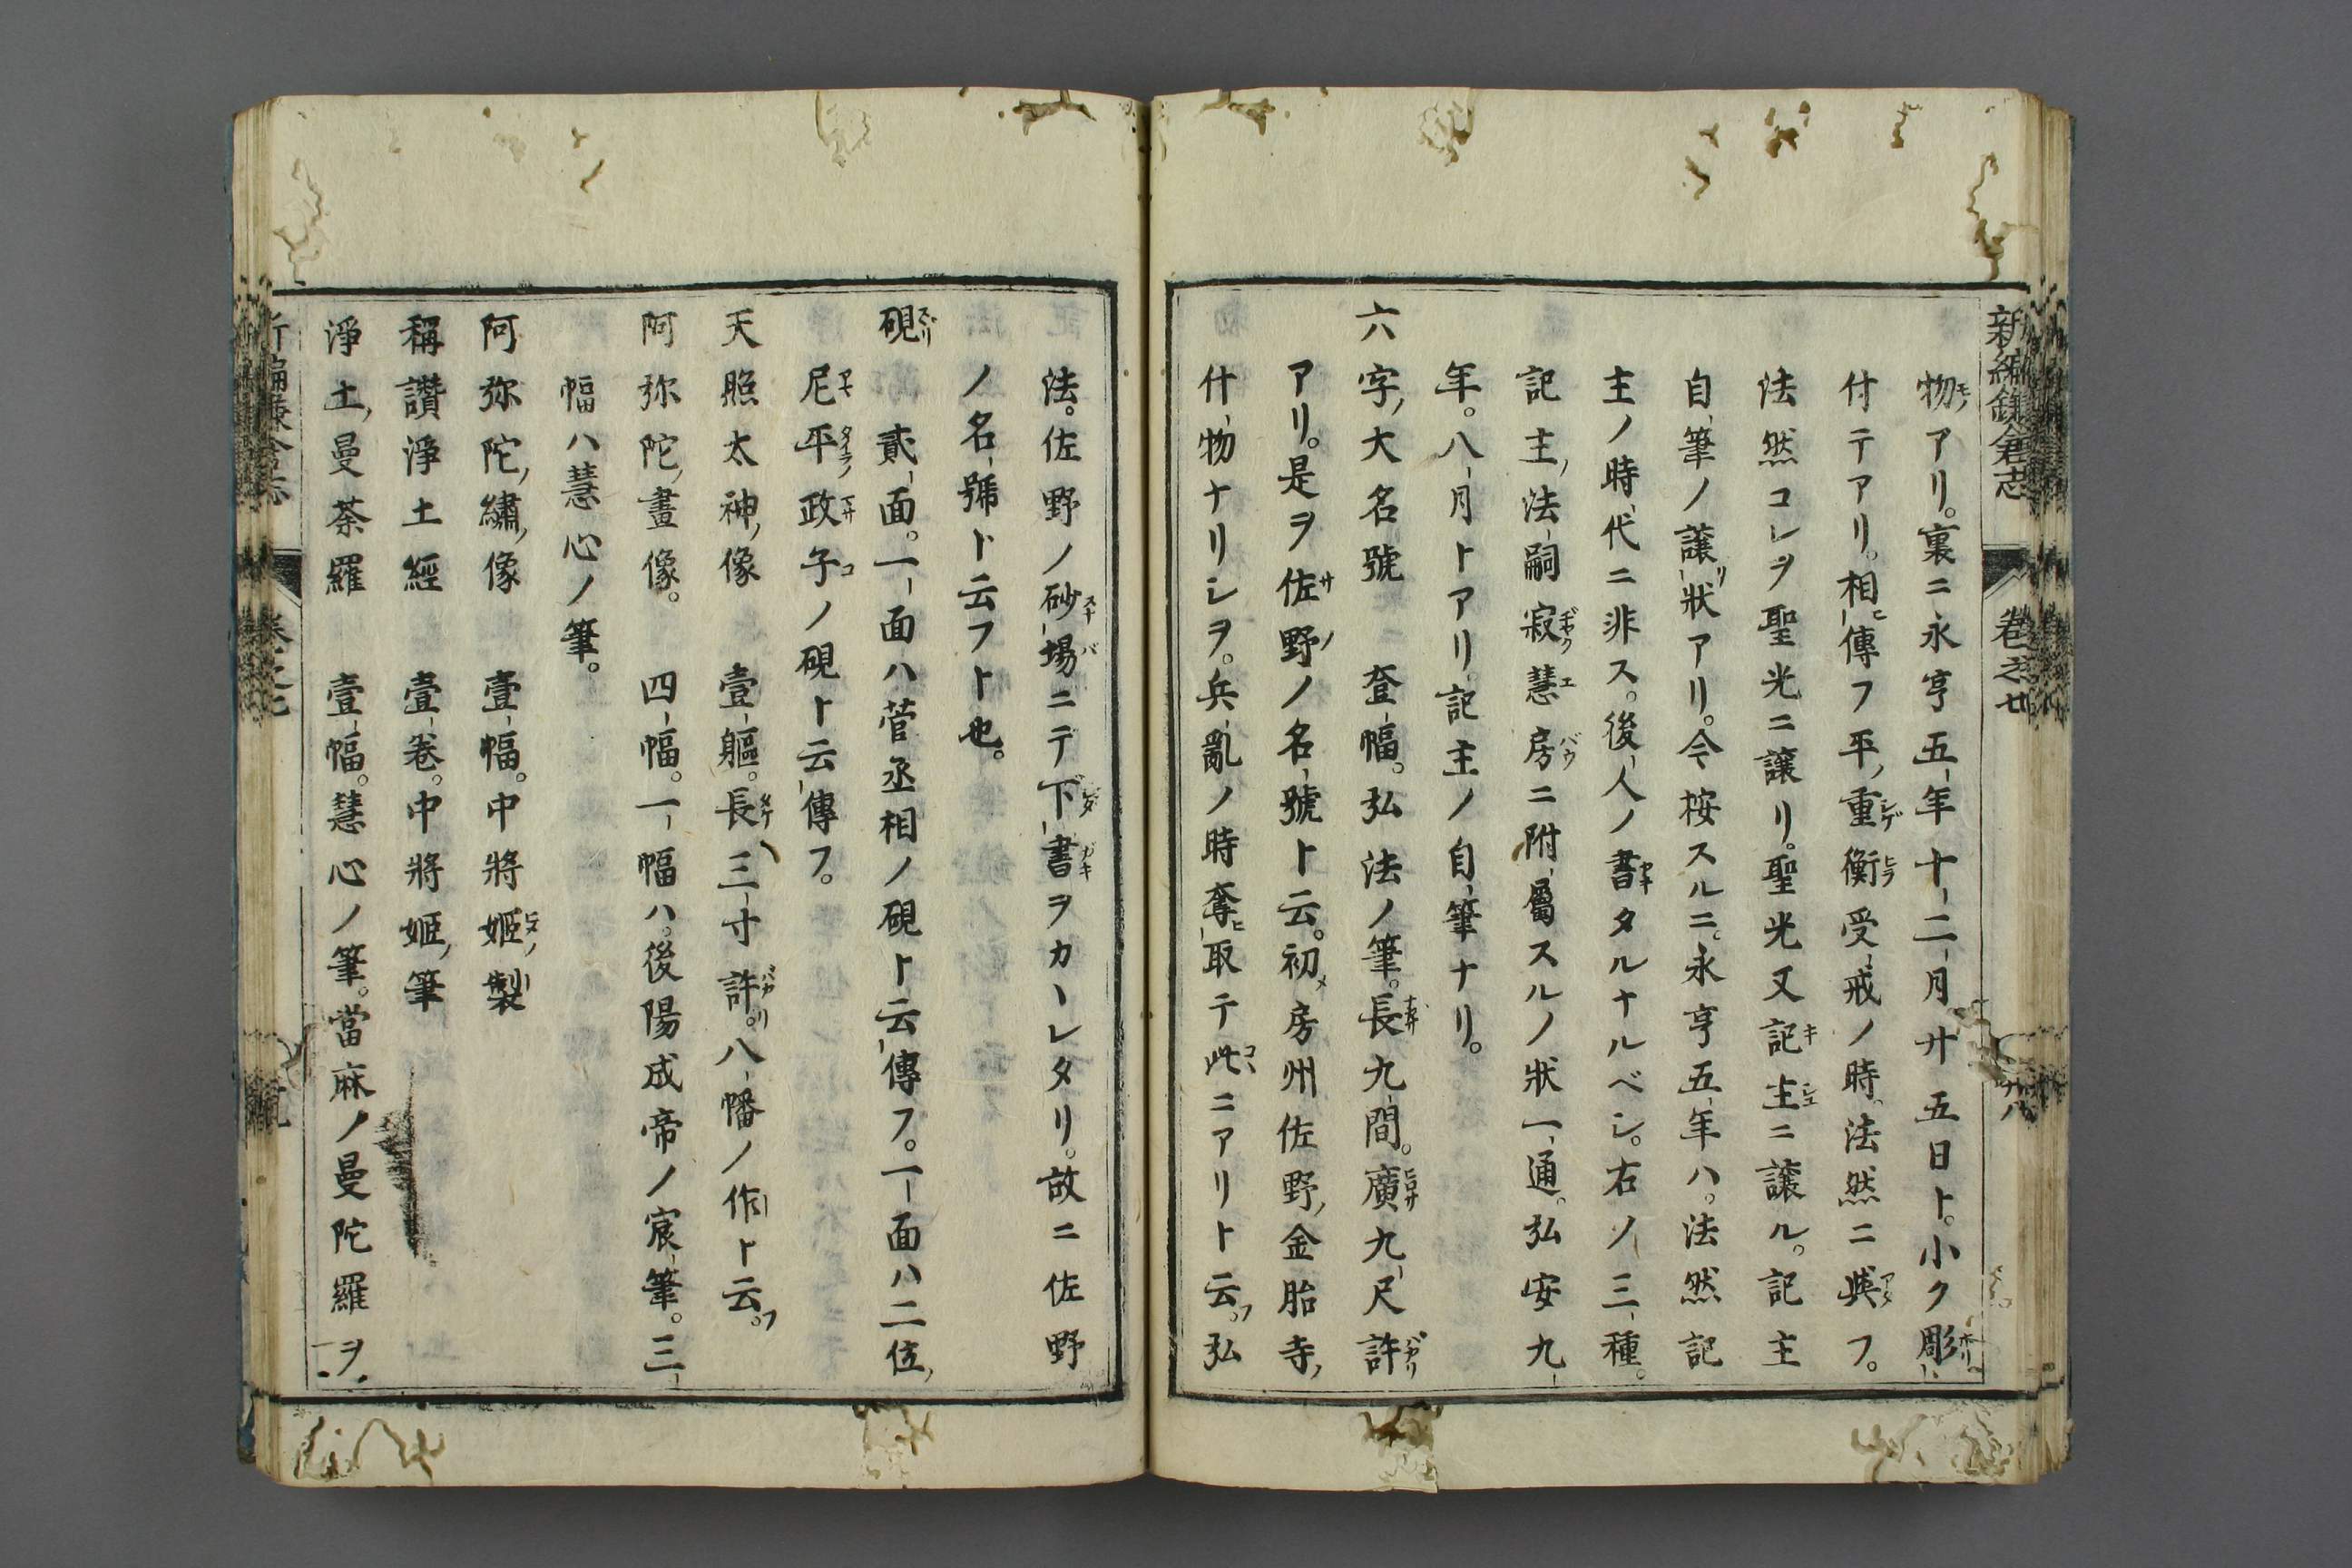 新編鎌倉志
卷之七
物アリ。裏ニ永亨五年十二月廿五日ト。小ク彫
付テアリ。相傳フ平重衡受戒ノ時。法然ニ與フ。
法然コレヲ聖光ニ讓リ。聖光又記主ニ讓ル。記主
自筆ノ讓狀アリ。今按スルニ。永亨五年ハ。法然記
主ノ時代ニ非ス。後人ノ書タルナルベシ。右ノ三種。
記主法嗣寂慧房ニ附屬スルノ狀一通。弘安九
年。八月トアリ。記主ノ自筆ナリ。
六字大名號　壹幅。弘法ノ筆。長九間。廣九尺許
アリ。是ヲ佐野ノ名號ト云。初房州佐野金胎寺
什物ナリシヲ。兵亂ノ時奪取テ此ニアリト云。弘
法。佐野ノ砂場ニテ下書ヲカヽレタリ。故ニ佐野
ノ名號ト云フト也。
硯　貳面。一面ハ菅丞相ノ硯ト云傳フ。一面ハ二位
尼平政子ノ硯ト云傳フ。
天照太神像　壹軀。長三寸許。八幡ノ作ト云。
阿弥陀畫像。　四幅。一幅ハ。後陽成帝ノ宸筆。三
幅ハ慧心ノ筆。
阿弥陀繡像　壹幅。中將姬製
稱讚淨土經　壹卷。中將姬筆
淨土曼荼羅　壹幅。慧心ノ筆。當麻ノ曼陀羅ヲ